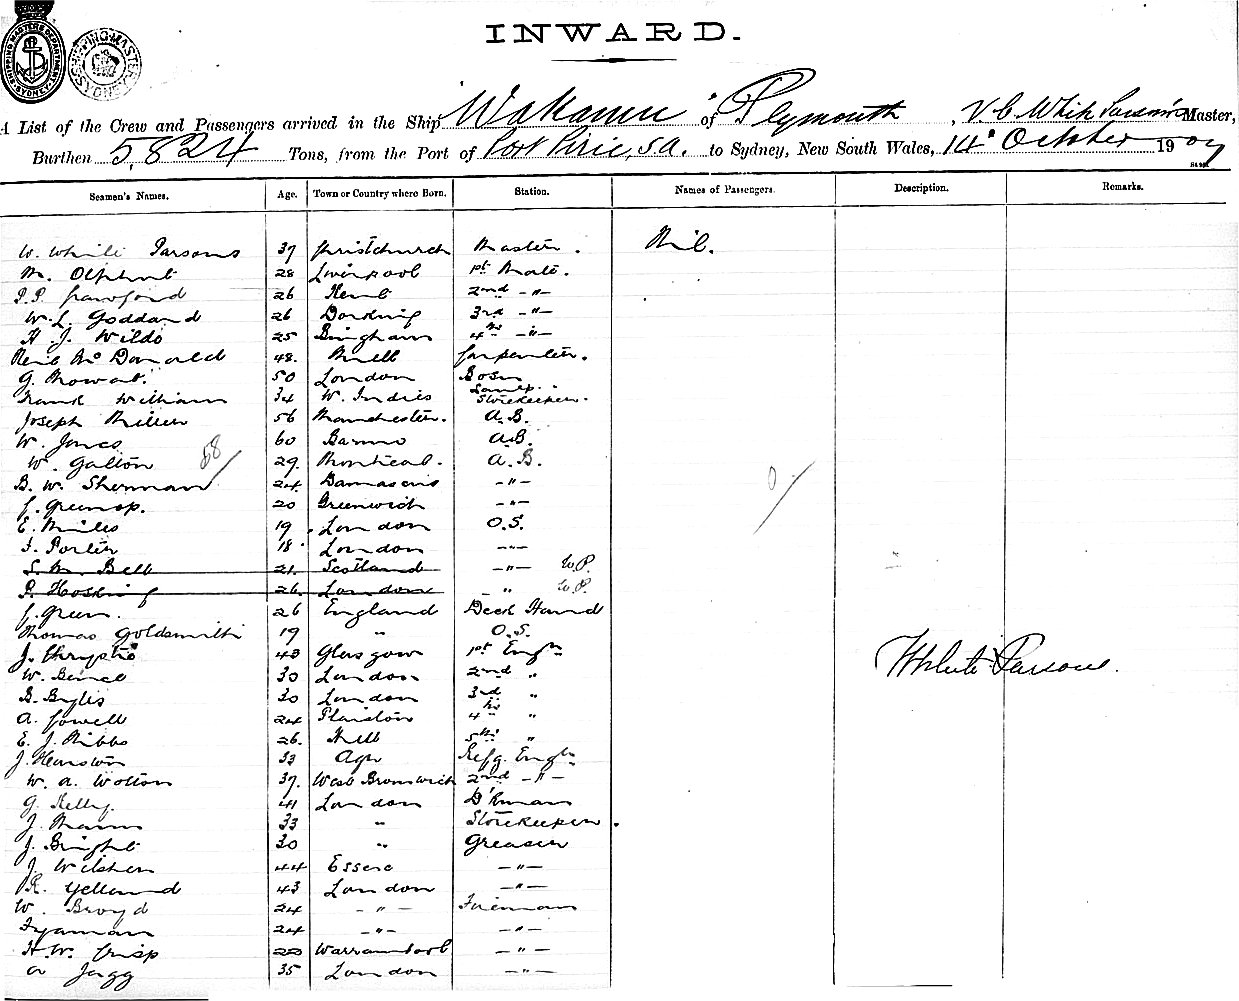 SHIPPING MASTER'S DEPARTMENT SYDNEY
SHIPPING MASTER SYDNEY
INWARD.
A List of the Crew and Passengers arrived in the Ship of Plymouth, Master,
Burthen 5,824 Tons, from the Port of Port Pirie, S.A. to Sydney, New South Wales, 14 October 1907
Seamen's Names. Age. Town or Country where Born. Station. Names of Passengers. Description. Remarks.
W. While Parsons 37 Christchurch Master. Nil.
M. 28 Liverpool 1st Mate.
P.P. Crawford 26 Kent 2nd -"-
W. L. Goddard 26 Dorking 3rd -"-
H. J. Wilde 25 Bingham 4th -"-
Neil McDonald 48. Carpenter.
G. Mowat. 50 London Bosn
Frank William 34 W. Indies Lamp. Storekeeper.
Joseph Miller 56 Manchester. A.B.
W. Jones 60 A.B.
W. Galton 29. Montreal. A.B.
B. W. Sherman 24 Damascus -"-
20 Greenwich -"-
E. Miles 19 London O.S.
F. Porter 18 London -"-
S. M. Bell 21. Scotland -"-
P. Hosking 26 London "
C. Green. 26 England Deck Hand
Thomas Goldsmith 19 " O.S.
J. Chrystie 43 Glasgow 1st Engr
W. 30 London 2nd "
B. 30 London 3rd "
A. Cowell 24 Plaistow 4th "
E. J. Nibbs 26. 5th "
J. 33 Refg. Engr
W. A. Wotton 37. West Bromwich 2nd -"-
G. Kelly. 41 London D'kman
J. Mann 33 " Storekeeper.
J. Bright 30 " Greaser
J. Wilsher 44 Essex -"-
R. Yelland 43 London -"-
W. Broyd 24 -"- Fireman
Fyaman 24 -"- -"-
H. W. Crisp 22 Warrnambool -"-
A Jagg 35 London -"-
While Parsons.